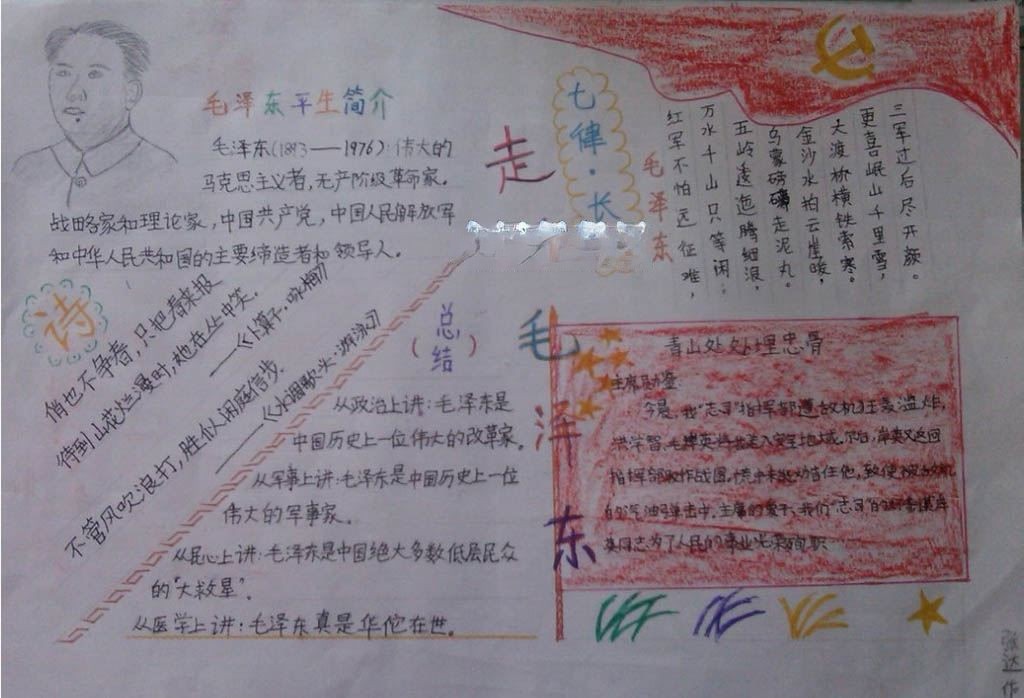 毛泽东平生简介
毛泽东(1893——1976):伟大的
马克思主义者,无产阶级革命家。
战略家和理论家,中国共产党,中国人民解放军
和中华人民共和国的主要缔造者和领导人。
诗
俏也不争春,只把春来报
待到山花烂漫时,她在丛中笑。
——《卜算子·咏梅》
不管风吹浪打,胜似闲庭信步
——《水调歌头·游泳》
(总结)
从政治上讲:毛泽东是
中国历史上一位伟大的改革家。
从军事上讲:毛泽东是中国历史上一位
伟大的军事家。
从民心上讲:毛泽东是中国绝大多数低层民众
的“大救星”。
从医学上讲:毛泽东真是华佗在世。
走
毛泽东
七律·长
毛泽东
红军不怕远征难,
万水千山只等闲;
五岭逶迤腾细浪,
乌蒙磅礴走泥丸。
金沙水拍云崖暖,
大渡桥横铁索寒。
更喜岷山千里雪,
三军过后尽开颜。
青山处处埋忠骨
主席
今晨,我“志司”指挥部遭敌机狂轰滥炸,
洪学智
指挥部取作战图,
的汽油弹击中,主席的爱子、我们“志司”的
英同志为了人民的事业光荣殉职
张达伟